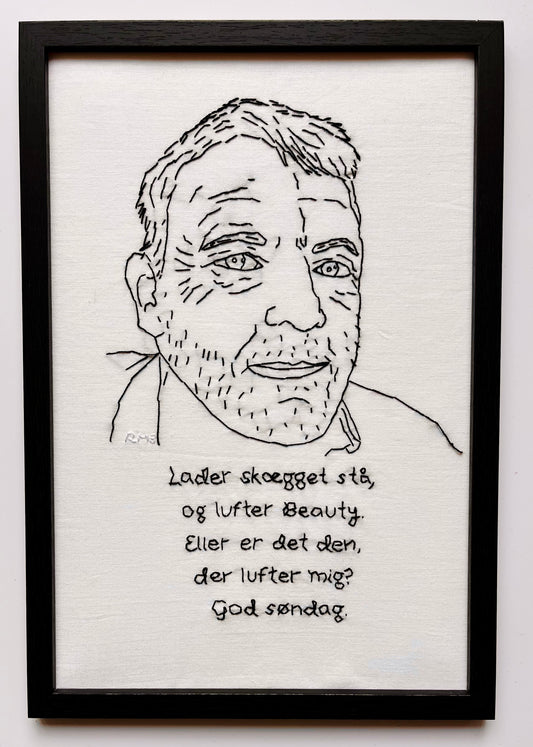 Lader skægget stå,
og lufter Beauty.
Eller er det den,
der lufter mig?
God søndag.